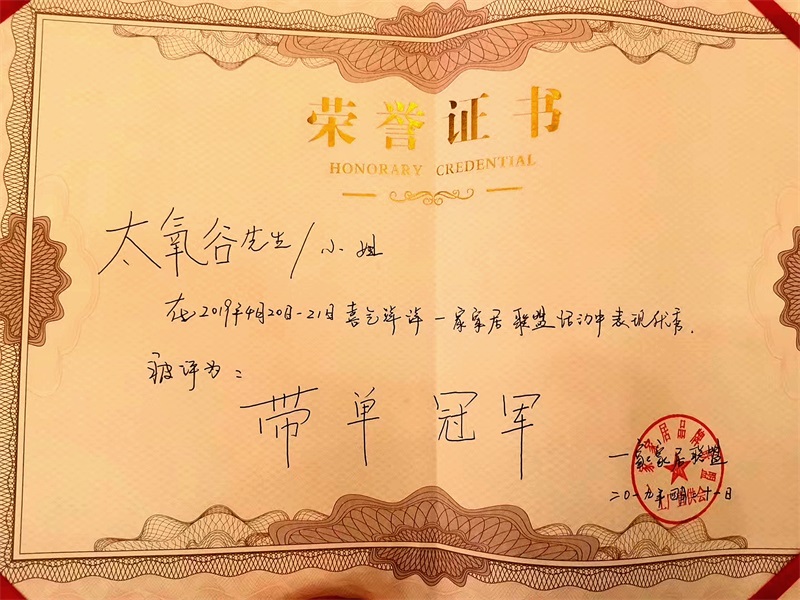 荣誉证书
HONORARY CREDENTIAL
太氧谷先生/小姐
在2019年4月20日-21日喜气洋洋一家家居联盟活动中表现优秀.
被评为:
带单冠军
一家家居联盟
二〇一九年四月二十一日